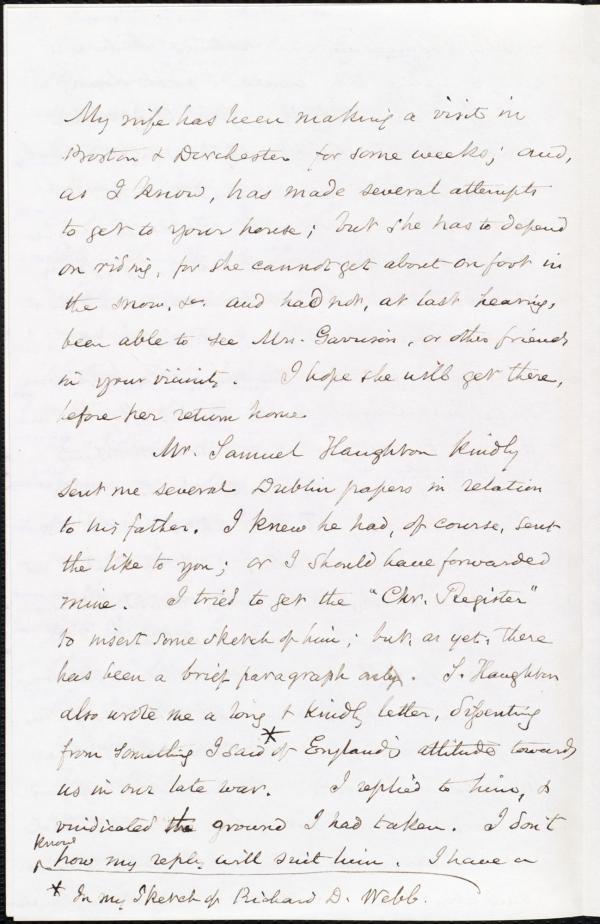 My wife has been making a visit in
Boston & Dorchester for some weeks; and,
as I know, has made several attempts
to get to your house; but she has to depend
on riding, for she cannot get about on foot in
the snow, &c. and had not, at last hearing,
been able to see Mrs. Garrison, or other friends
in your vicinity. I hope she will get there,
before her return home.
Mr. Samuel Haughton kindly
sent me several Dublin papers in relation
to his father. I knew he had, of course, sent
the like to you; or I should have forwarded
mine. I tried to get the "Chr. Register"
to insert some sketch of him; but, as yet, there
has been a brief paragraph only. S. Haughton
also wrote me a long & kindly letter, dissenting
from something I said * of England's attitude towards
us in our late war. I replied to him, &
vindicated the ground I had taken. I don't
know
how my reply will suit him. I have a
* In my Sketch of Richard D. Webb.